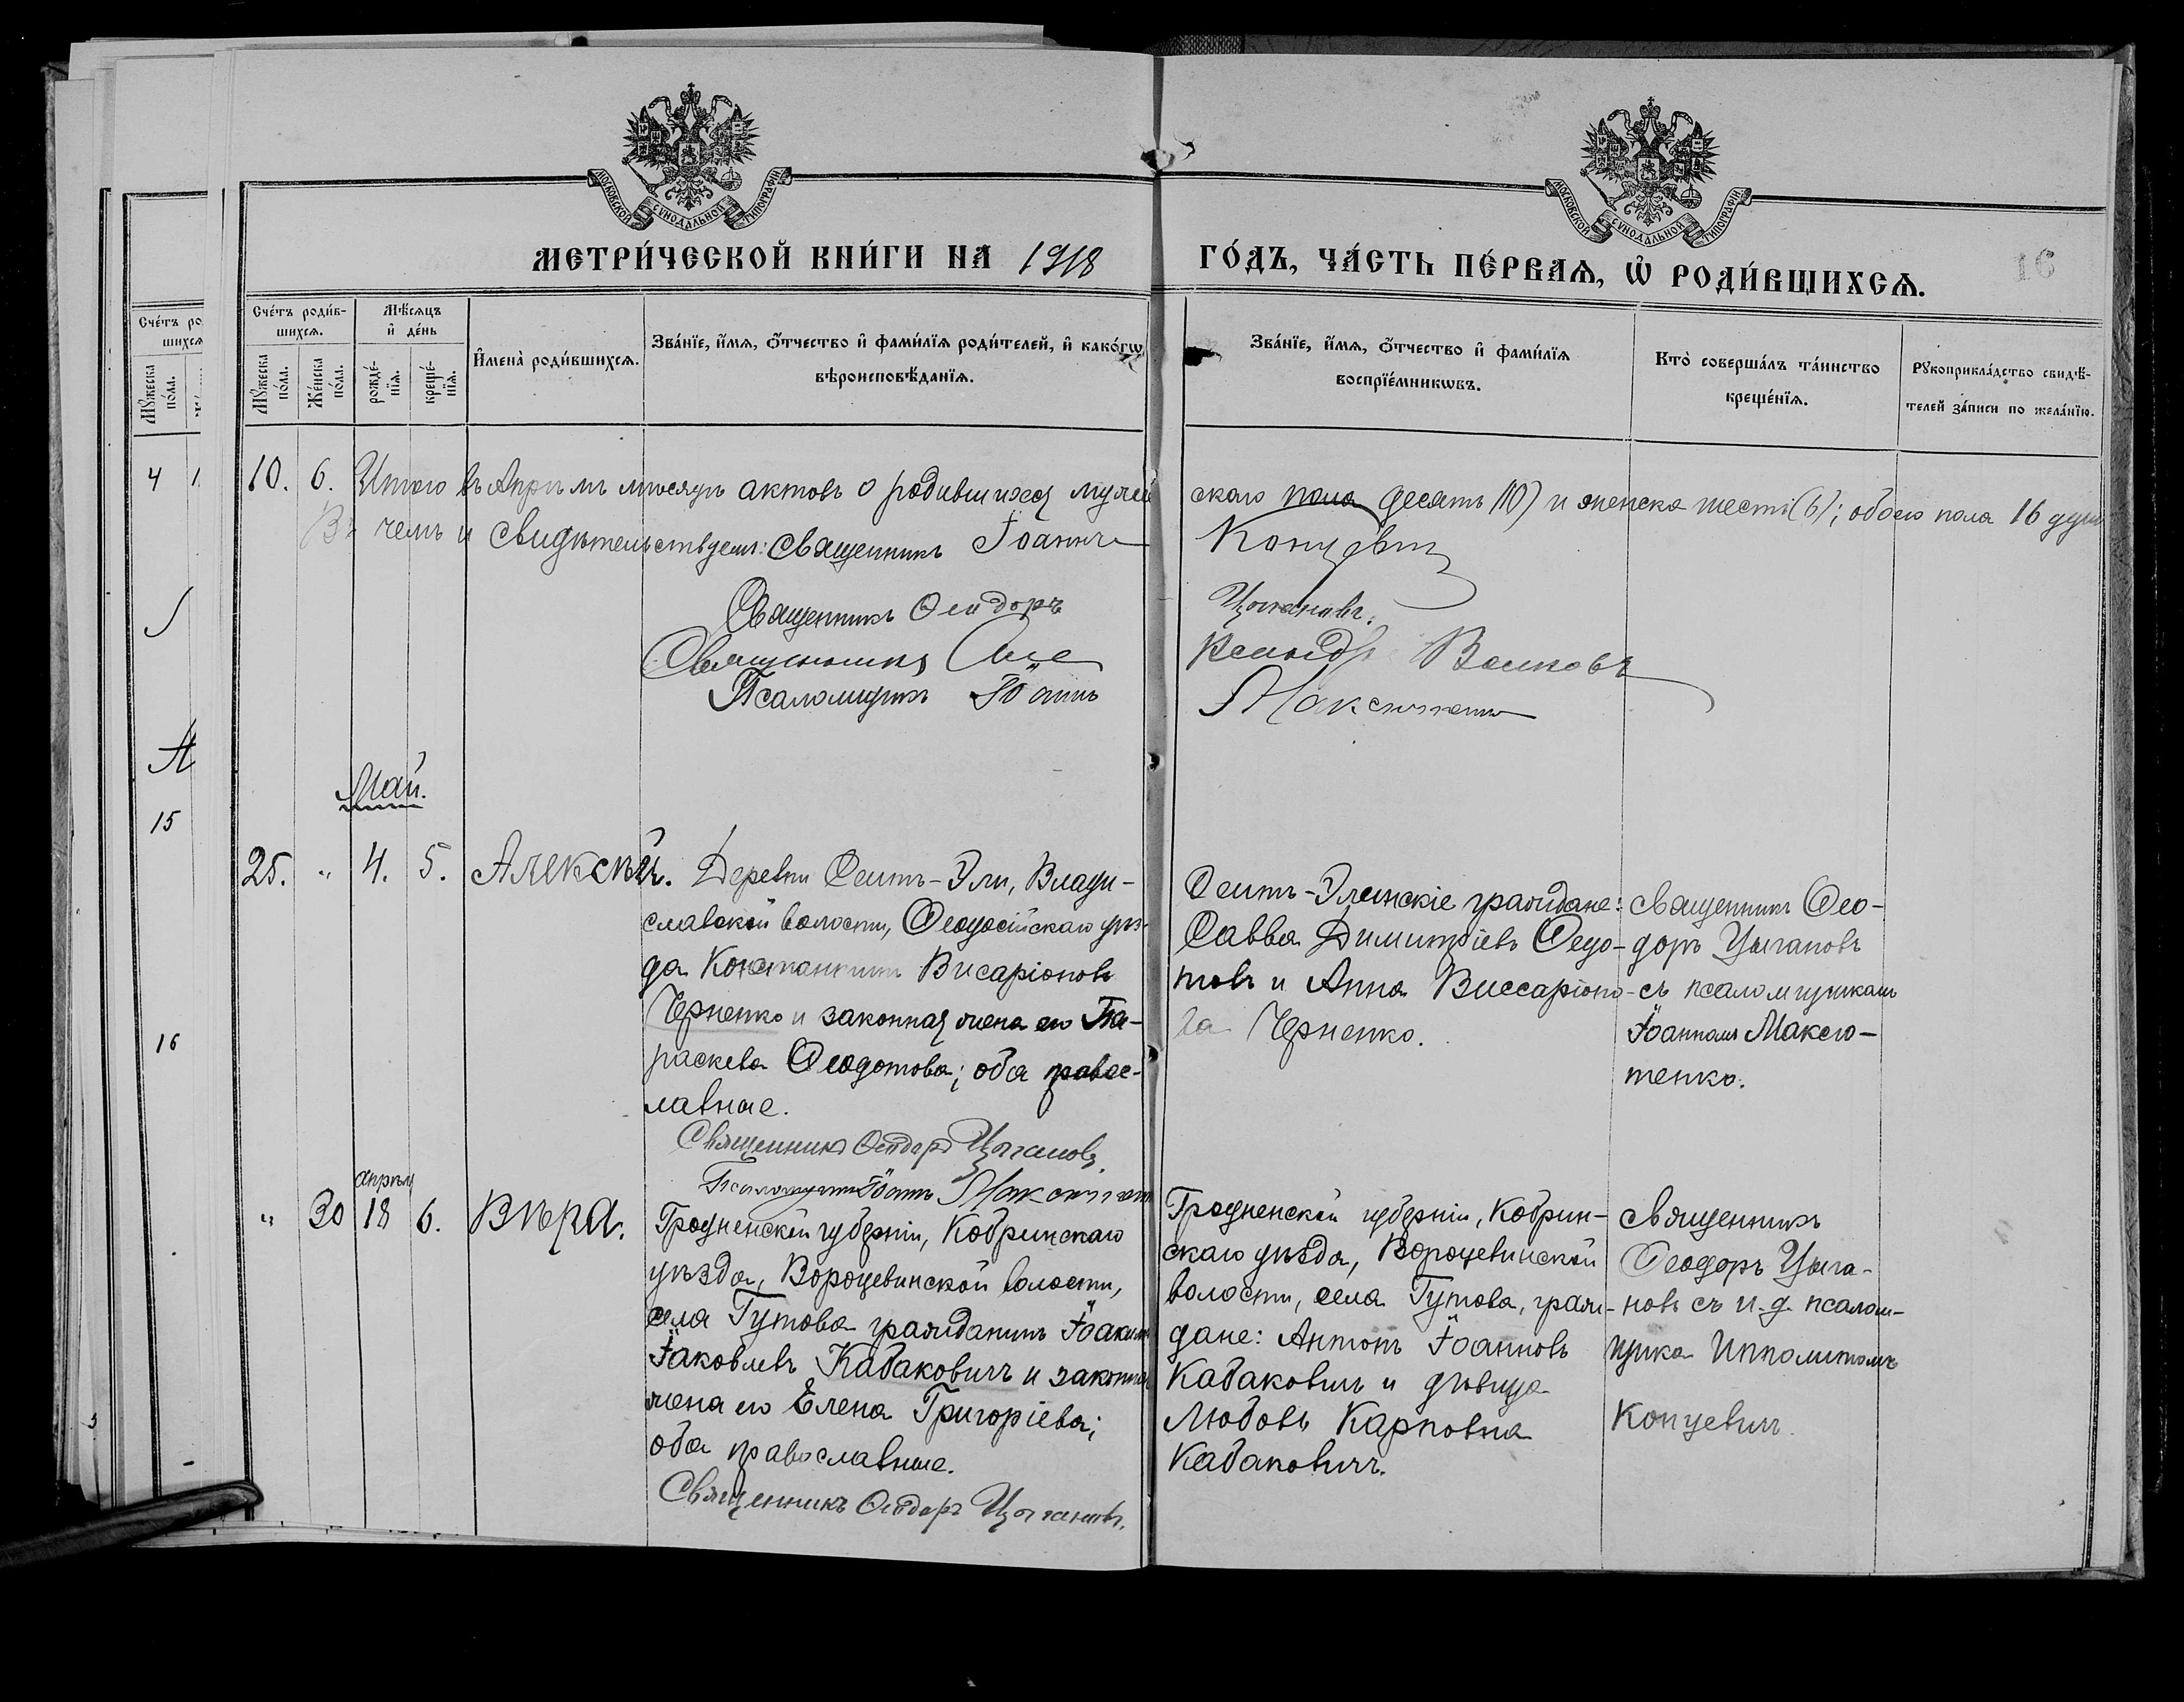 МОСКОВСКОЙ СѴНОДАЛЬНОЙ ТИПОГРАФІИ
МОСКОВСКОЙ СѴНОДАЛЬНОЙ ТИПОГРАФІИ
МЕТРИ́ЧЕСКОЙ КНИ́ГИ НА 1918 ГО́ДЪ, ЧА́СТЬ ПЕ́РВАѦ, Ѡ҆ РОДИ́ВШИХСѦ.
16
Сче́тъ роди́в-
шихсѧ.
Мꙋ́жеска по́ла.
Же́нска по́ла.
Мѣ́сѧцъ и҆ де́нь
рожде́-нїѧ.
креще́-нїѧ.
И҆мена̀ роди́вшихсѧ.
Зва́нїе, и҆́мѧ, ѻ҆́тчество и҆ фами́лїѧ роди́телей, и҆ како́гѡ
вѣроисповѣ́данїѧ.
Зва́нїе, и҆́мѧ, ѻ҆́тчество и҆ фами́лїѧ
воспрїе́мникѡвъ.
Кто̀ соверша́лъ та́инство
креще́нїѧ.
Рꙋкоприкла́дство свидѣ́-
телей за́писи по жела́нїю.
4 1
10. 6. Итого въ Апрѣлѣ мѣсяцѣ актовъ о родившихся мужескаго пола десять (10) и женска шесть (6); обоего пола 16 душ
Въ чемъ и свидѣтельствуемъ: Священникъ Іоаннъ Концевич
Священникъ Ѳеодоръ Цыгановъ.
Священникъ Александръ Волковъ
Псаломщикъ Іоаннъ Максютенко
Май.
15
16
25. " 4. 5. Алексѣй.
Деревни Сеитъ-Эли, Влади-
славской волости, Ѳеодосійскаго уѣз-
да Константинъ Висаріоновъ
Черненко и законная жена его Па-
раскева Ѳеодотова; оба правос-
лавные.
Священникъ Ѳеодоръ Цыгановъ.
Псаломщикъ Іоаннъ Максютен
Сеитъ-Элинскіе граждане:
Савва Димитріевъ Ѳедо-
товъ и Анна Виссаріоно-
ва Черненко.
Священникъ Ѳео-
доръ Цыгановъ
съ псаломщикомъ
Іоанномъ Максю-
тенко.
" 30 апрѣля 18 6. Вѣра.
Гродненской губерніи, Кобринскаго
уѣзда, Вороцевинской волости,
села Гутова гражданинъ Іоакимъ
Іаковлевъ Кабаковичъ и законная
жена его Елена Григоріева;
оба православные.
Священникъ Ѳеодоръ Цыгановъ.
Гродненской губерніи, Кобрин-
скаго уѣзда, Вороцевинской
волости, села Гутова, граж-
дане: Антонъ Іоанновъ
Кабаковичъ и дѣвица
Любовь Карповна
Кабаковичъ.
Священникъ
Ѳеодоръ Цыга-
новъ съ и. д. псалом-
щика Ипполитомъ
Концевичъ.